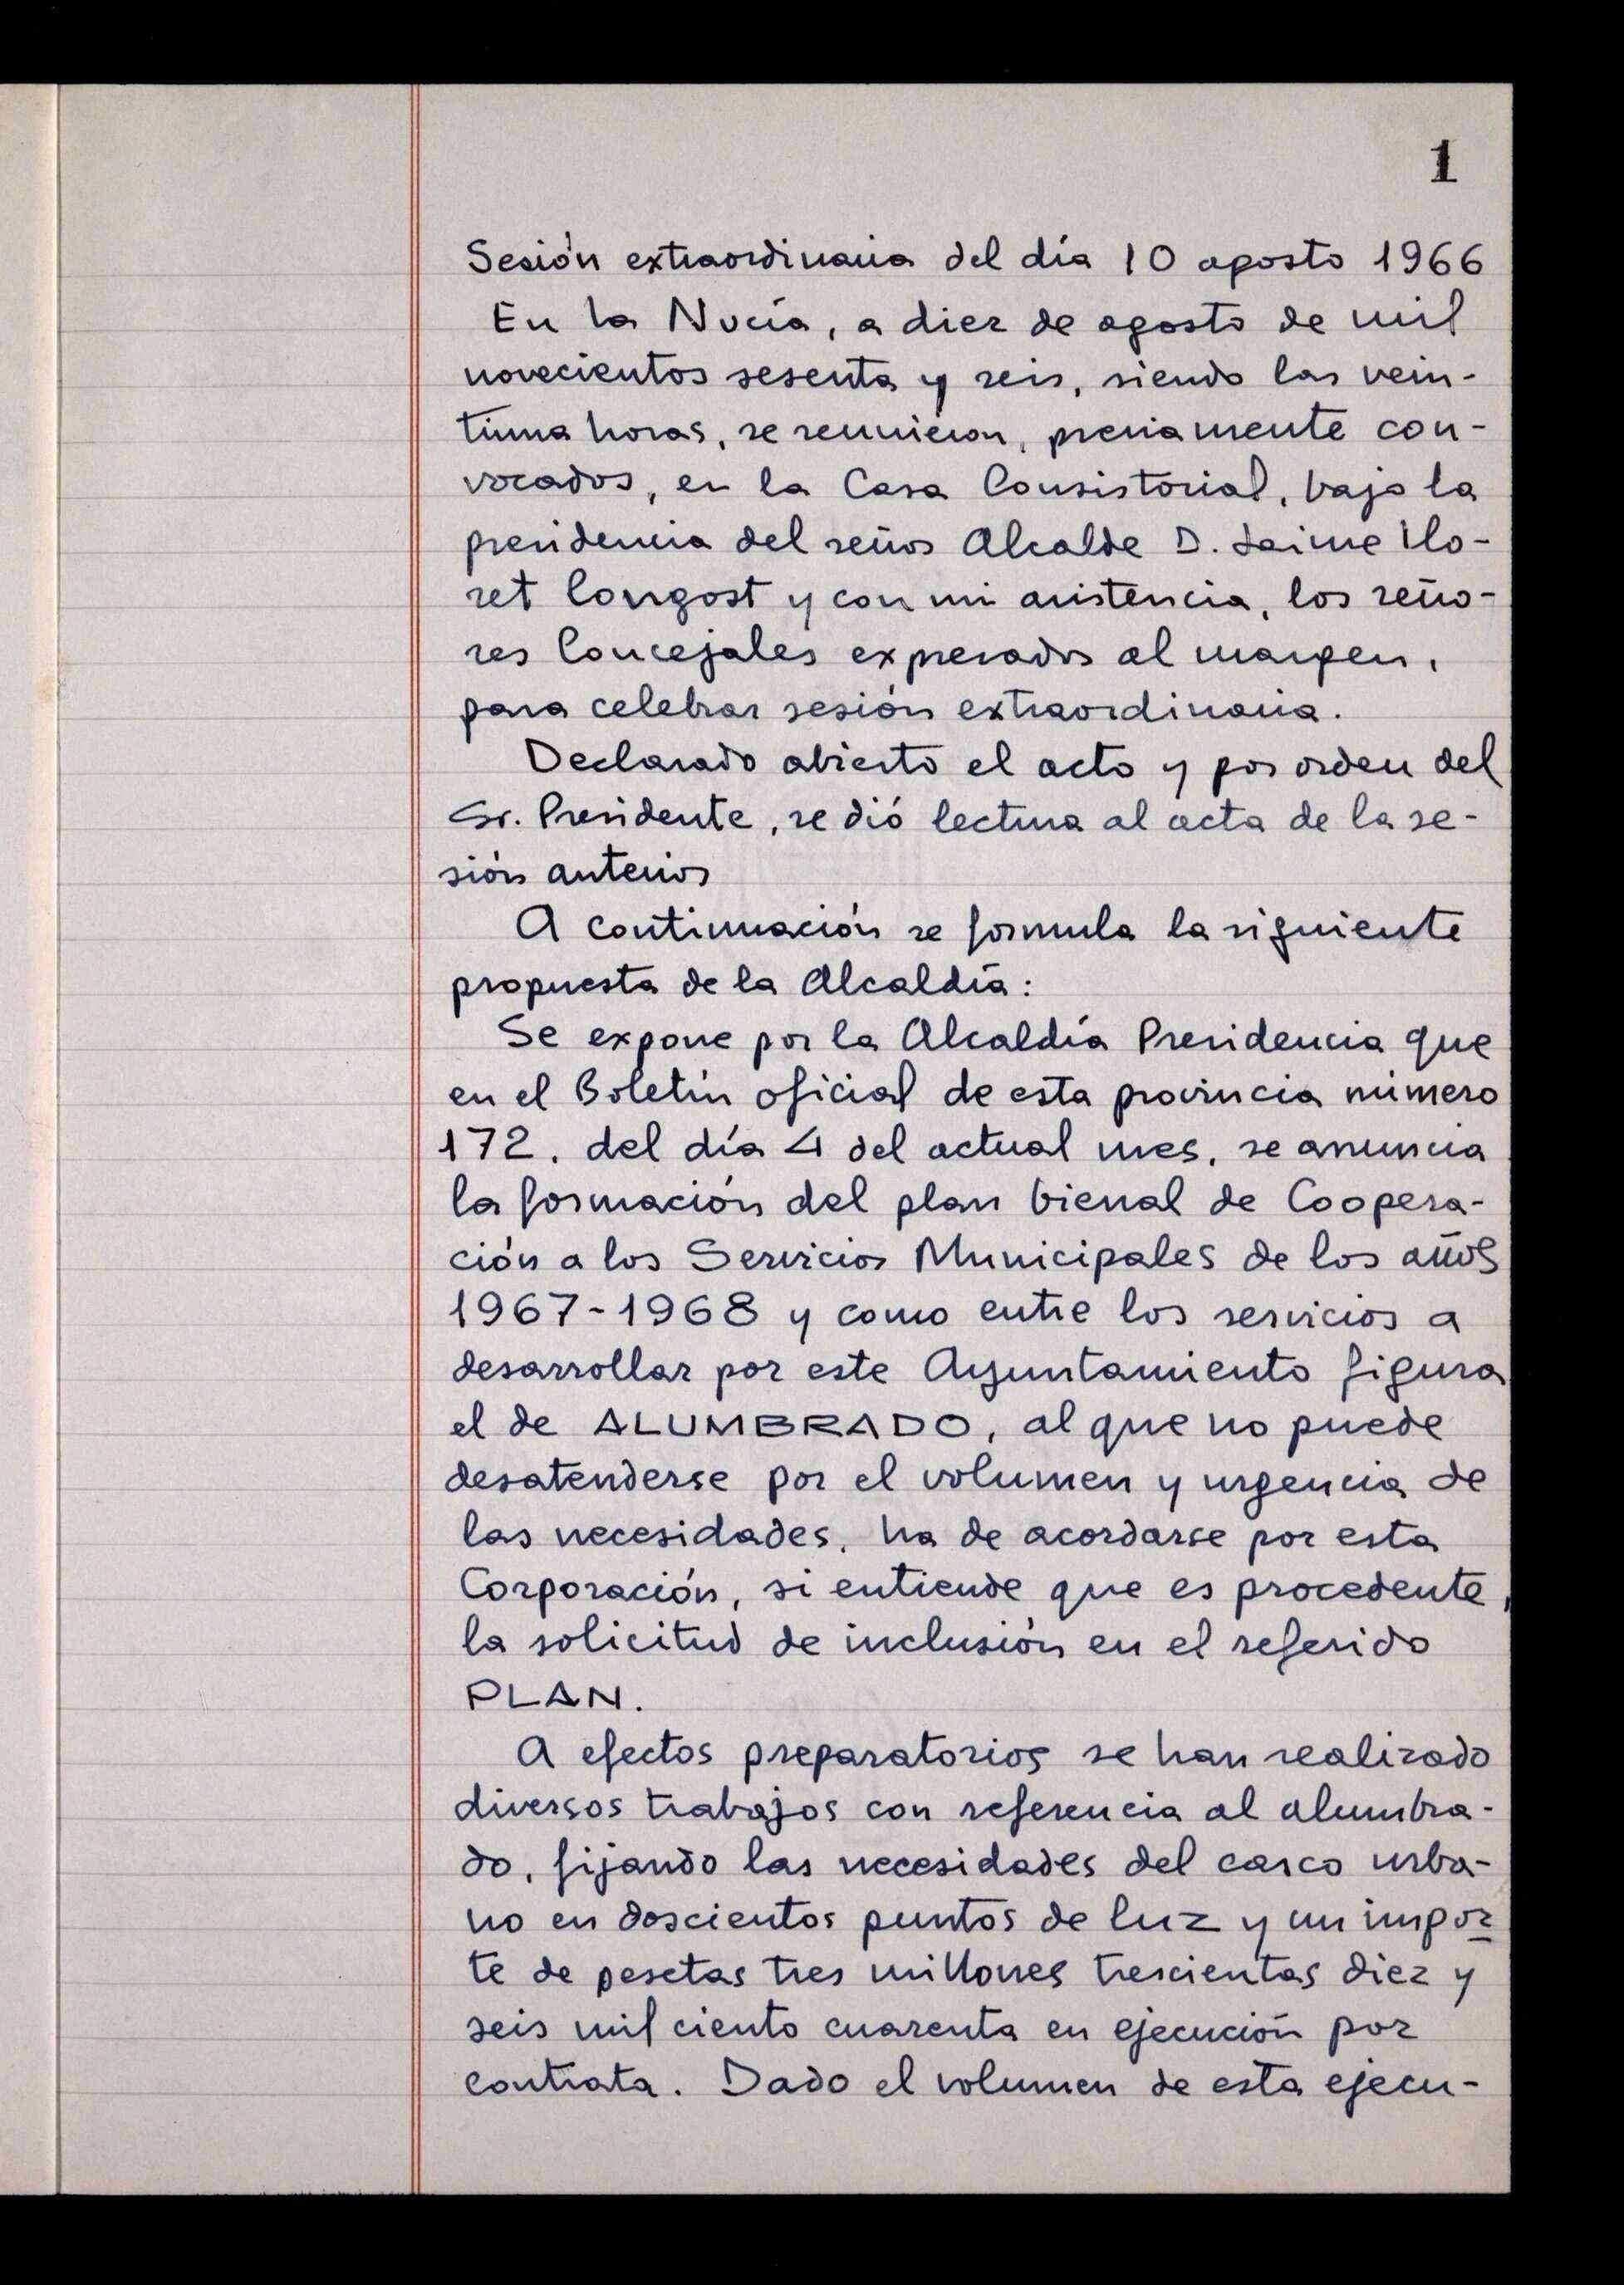 1
Sesión extraordinaria del día 10 agosto 1966
En la Nucía, a diez de agosto de mil
novecientos sesenta y seis, siendo las vein-
tiuna horas, se reunieron, previamente con-
vocados, en la Casa Consistorial, bajo la
presidencia del señor Alcalde D. Jaime Llo-
ret Congost y con mi asistencia, los seño-
res Concejales expresados al margen,
para celebrar sesión extraordinaria.
Declarado abierto el acto y por orden del
Sr. Presidente, se dió lectura al acta de la se-
sión anterior
A continuación se formula la siguiente
propuesta de la Alcaldía:
Se expone por la Alcaldía Presidencia que
en el Boletín oficial de esta provincia número
172, del día 4 del actual mes, se anuncia
la formación del plan bienal de Coopera-
ción a los Servicios Municipales de los años
1967-1968 y como entre los servicios a
desarrollar por este Ayuntamiento figura
el de ALUMBRADO, al que no puede
desatenderse por el volumen y urgencia de
las necesidades, ha de acordarse por esta
Corporación, si entiende que es procedente,
la solicitud de inclusión en el referido
PLAN.
A efectos preparatorios se han realizado
diversos trabajos con referencia al alumbra-
do, fijando las necesidades del casco urba-
no en doscientos puntos de luz y un impor
te de pesetas tres millones trescientas diez y
seis mil ciento cuarenta en ejecución por
contrata. Dado el volumen de esta ejecu-